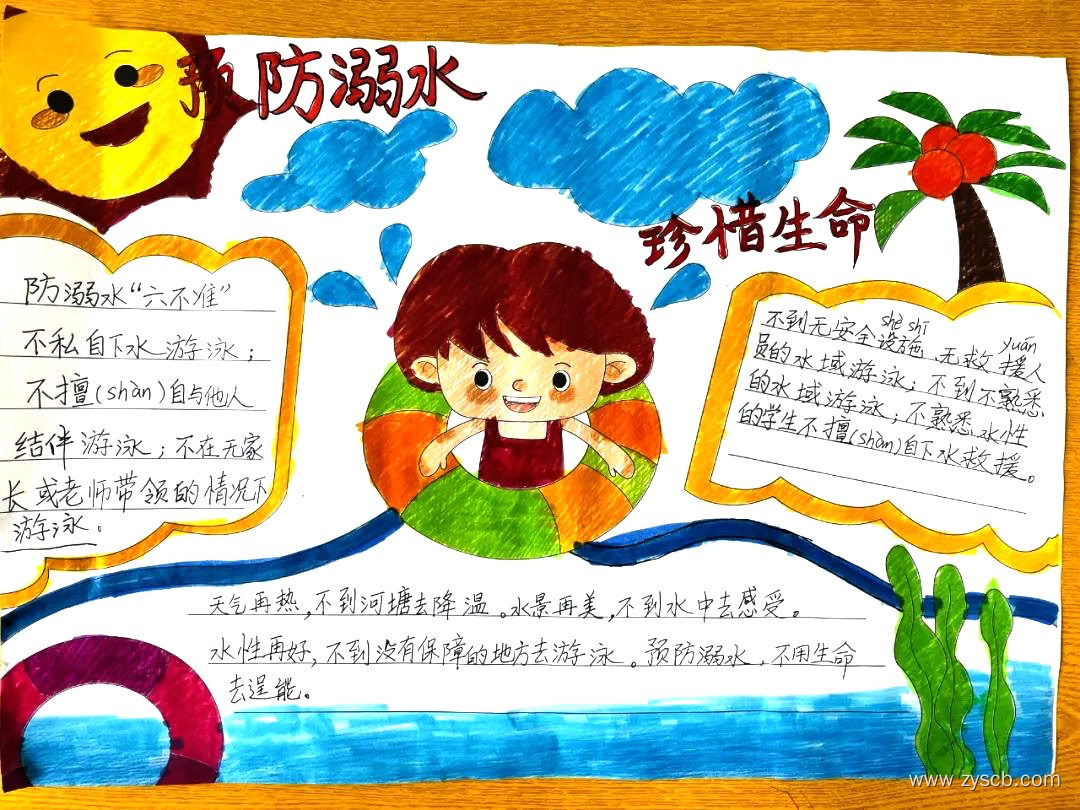 预防溺水
珍惜生命
防溺水“六不准”
不私自下水游泳；
不擅(shàn)自与他人
结伴游泳；不在无家
长或老师带领的情况下
游泳。
shè shī
yuán
不到无安全设施、无救援人
员的水域游泳；不到不熟悉
的水域游泳；不熟悉水性
的学生不擅(shàn)自下水救援。
天气再热，不到河塘去降温。水景再美，不到水中去感受。
水性再好，不到没有保障的地方去游泳。预防溺水，不用生命
去逞能。
www.zyscb.com